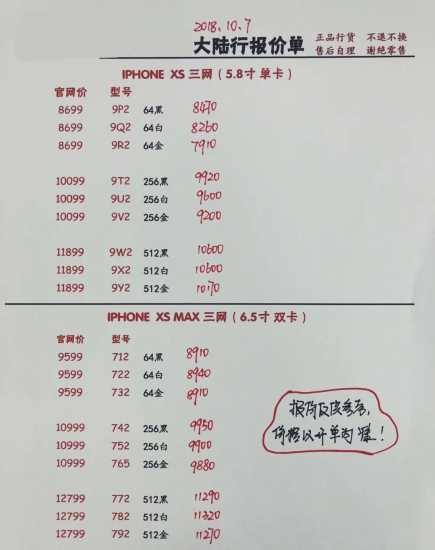 2018.10.7
大陆行报价单 正品行货 不退不换
售后自理 谢绝零售
IPHONE XS 三网（5.8寸 单卡）
官网价 型号
8699 9P2 64黑 8470
8699 9Q2 64白 8260
8699 9R2 64金 7910
10099 9T2 256黑 9920
10099 9U2 256白 9600
10099 9V2 256金 9200
11899 9W2 512黑 10600
11899 9X2 512白 10600
11899 9Y2 512金 10170
IPHONE XS MAX 三网（6.5寸 双卡）
官网价 型号
9599 712 64黑 8910
9599 722 64白 8940
9599 732 64金 8910
10999 742 256黑 9950
10999 752 256白 9900
10999 765 256金 9880
12799 772 512黑 11290
12799 782 512白 11320
12799 792 512金 11270
报价仅度参考，
价格以开单为准！